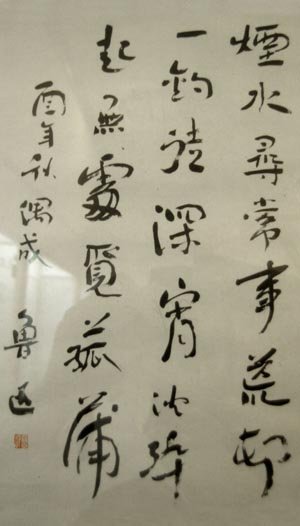 煙水尋常事荒邨
一釣徒深宵沈醉
起無處覓菰蒲
酉年秋偶成
魯迅